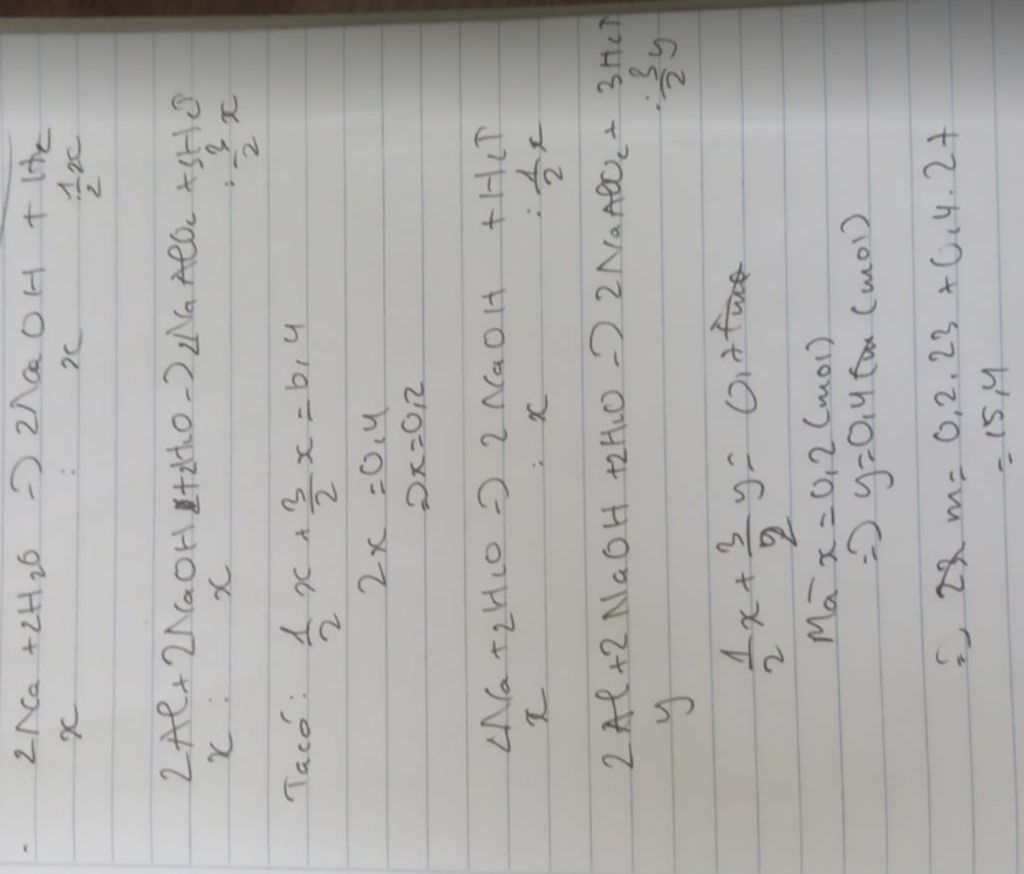 2Na + 2H2O => 2NaOH + H2
x : x 1/2x
2Al + 2NaOH + 2H2O -> 2NaAlO2 + 3H2↑
x : x : 3/2 x
Ta có: 1/2 x + 3/2 x = 0,4
2x = 0,4
=> x = 0,2
2Na + 2H2O => 2NaOH + H2↑
x : x : 1/2 x
2Al + 2NaOH + 2H2O => 2NaAlO2 + 3H2↑
y : 3/2 y
1/2 x + 3/2 y = 0,7
Mà x = 0,2 (mol)
=> y = 0,4 (mol)
=> m = 0,2.23 + 0,4.27
= 15,4